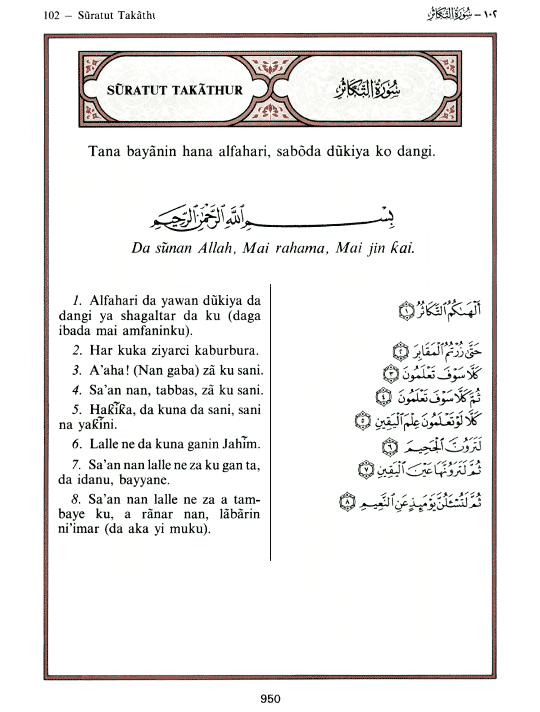 102 — Sũratut Takãthu
١٠٢ – سُورَةُ التَّكَاثُرِ
SŨRATUT TAKÃTHUR
سُورَةُ التَّكَاثُرِ
Tana bayãnin hana alfahari, sabõda dũkiya ko dangi.
بِسْمِ اللَّهِ الرَّحْمَٰنِ الرَّحِيمِ
Da sũnan Allah, Mai rahama, Mai jin ƙai.
1. Alfahari da yawan dũkiya da
dangi ya shagaltar da ku (daga
ibada mai amfaninku).
2. Har kuka ziyarci kaburbura.
3. A'aha! (Nan gaba) zã ku sani.
4. Sa'an nan, tabbas, zã ku sani.
5. Haƙĩƙa, da kuna da sani, sani
na yaƙĩni.
6. Lalle ne da kuna ganin Jahĩm.
7. Sa'an nan lalle ne za ku gan ta,
da idanu, bayyane.
8. Sa'an nan lalle ne za a tam-
baye ku, a rãnar nan, lãbãrin
ni'imar (da aka yi muku).
أَلْهَىٰكُمُ التَّكَاثُرُ ١
حَتَّىٰ زُرْتُمُ الْمَقَابِرَ ٢
كَلَّا سَوْفَ تَعْلَمُونَ ٣
ثُمَّ كَلَّا سَوْفَ تَعْلَمُونَ ٤
كَلَّا لَوْ تَعْلَمُونَ عِلْمَ الْيَقِينِ ٥
لَتَرَوُنَّ الْجَحِيمَ ٦
ثُمَّ لَتَرَوُنَّهَا عَيْنَ الْيَقِينِ ٧
ثُمَّ لَتُسْـَٔلُنَّ يَوْمَئِذٍ عَنِ النَّعِيمِ ٨
950